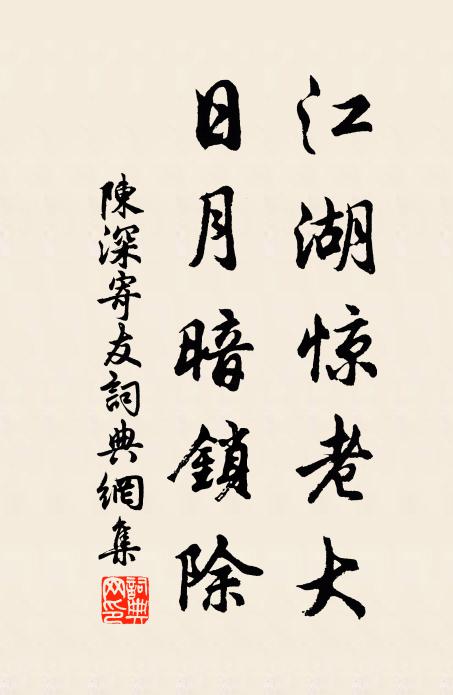 江湖惊老大
日月暗鎖除
陳深寄友詞典網集
詞典网印